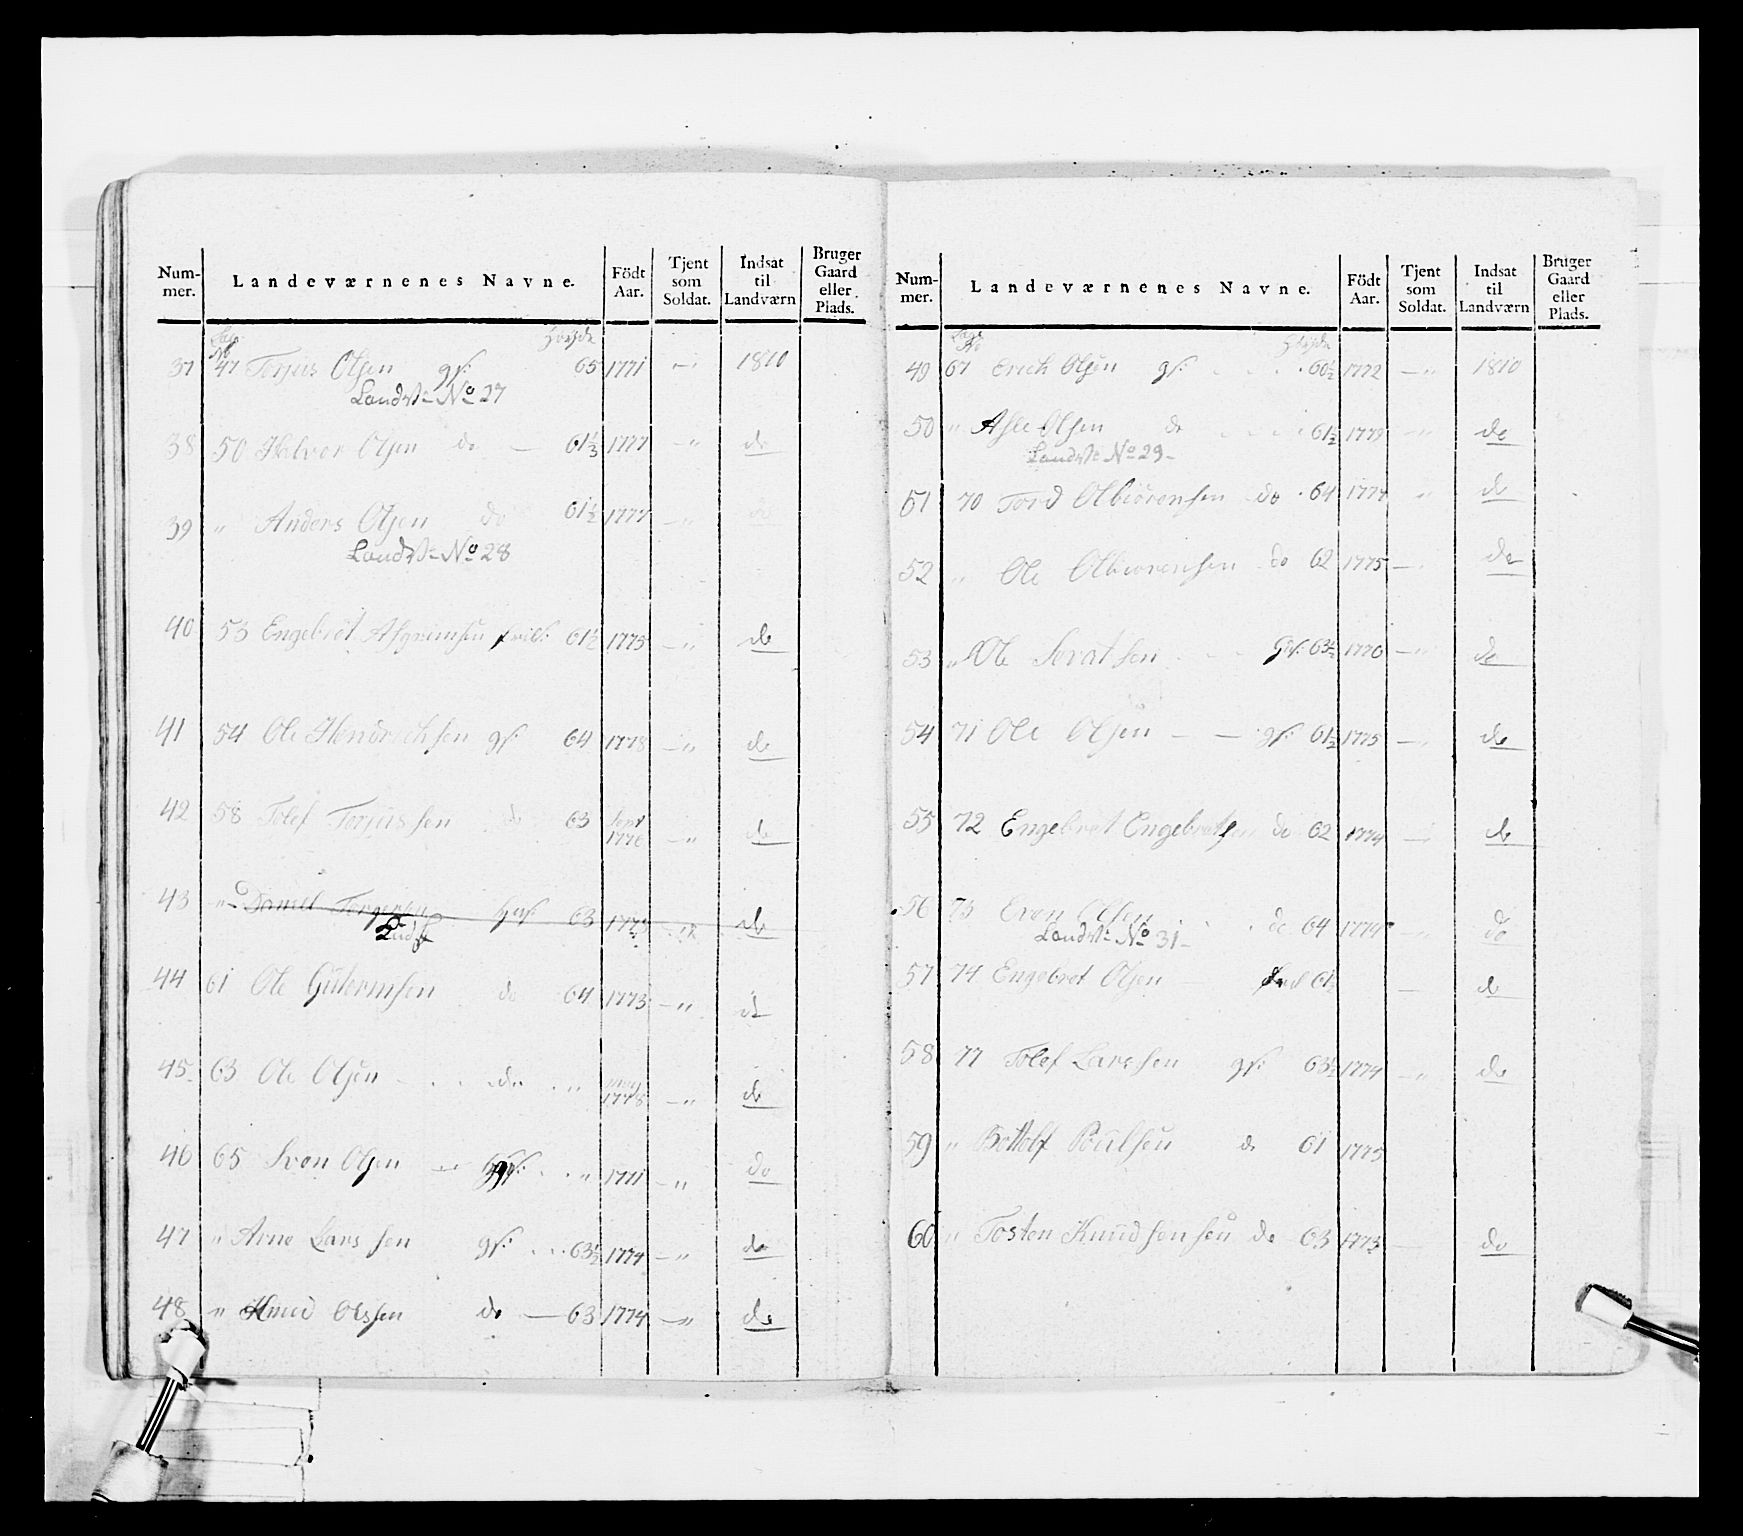 Num-mer. Landeværnenes Navne. Födt Aar. Tjent som Soldat. Indsat til Landværn Bruger Gaard eller Plads.
No Höyde
37 47 Torjus Olsen gf: 65 1771 — " 1810
Landv: No 27
38 50 Halvor Olsen do — 61⅓ 1777 — " do
39 " Anders Olsen do 61½ 1777 — " do
Landv: No 28
40 53 Engebret Asgrimsen 61½ 1775 — " do
41 54 Ole Hendrichsen gf: 64 1778 — " do
42 58 Tolef Torjussen do 63 1776 — " do
43 " Daniell Torgersen 63 1773 do
44 61 Ole Guttormsen do 64 1773 — " do
45 63 Ole Olsen do " may 1778 — " do
46 65 Sven Olsen gf: " 1771 — " do
47 " Arne Larssen gf: 63½ 1774 — " do
48 " Knud Olssen do — 63 1774 — " do
Num-mer. Landeværnenes Navne. Födt Aar. Tjent som Soldat. Indsat til Landværn Bruger Gaard eller Plads.
No Höyde
49 67 Erich Olsen gf: 60½ 1772 — " 1810
50 " Asle Olsen do 61½ 1779 — " do
Landv: No 29
51 70 Tord Olbiörensen do 64 1777 " do
52 " Ole Olbiörensen do 62 1775 — " do
53 " Ole Sevatsen gf: 63½ 1776 — " do
54 71 Ole Olsen — — gf: 61½ 1775 — " do
55 72 Engebret Engebretsen do 62 1774 — do
56 73 Even Olsen do 64 1774 — " do
Landv: No 31
57 74 Engebret Olsen 61½ — do
58 77 Tolef Larssen gf: 63½ 1774 — " do
59 " Bottolf Poulsen do 61 1775
60 " Tosten Knudsensen do 63 1773 — do